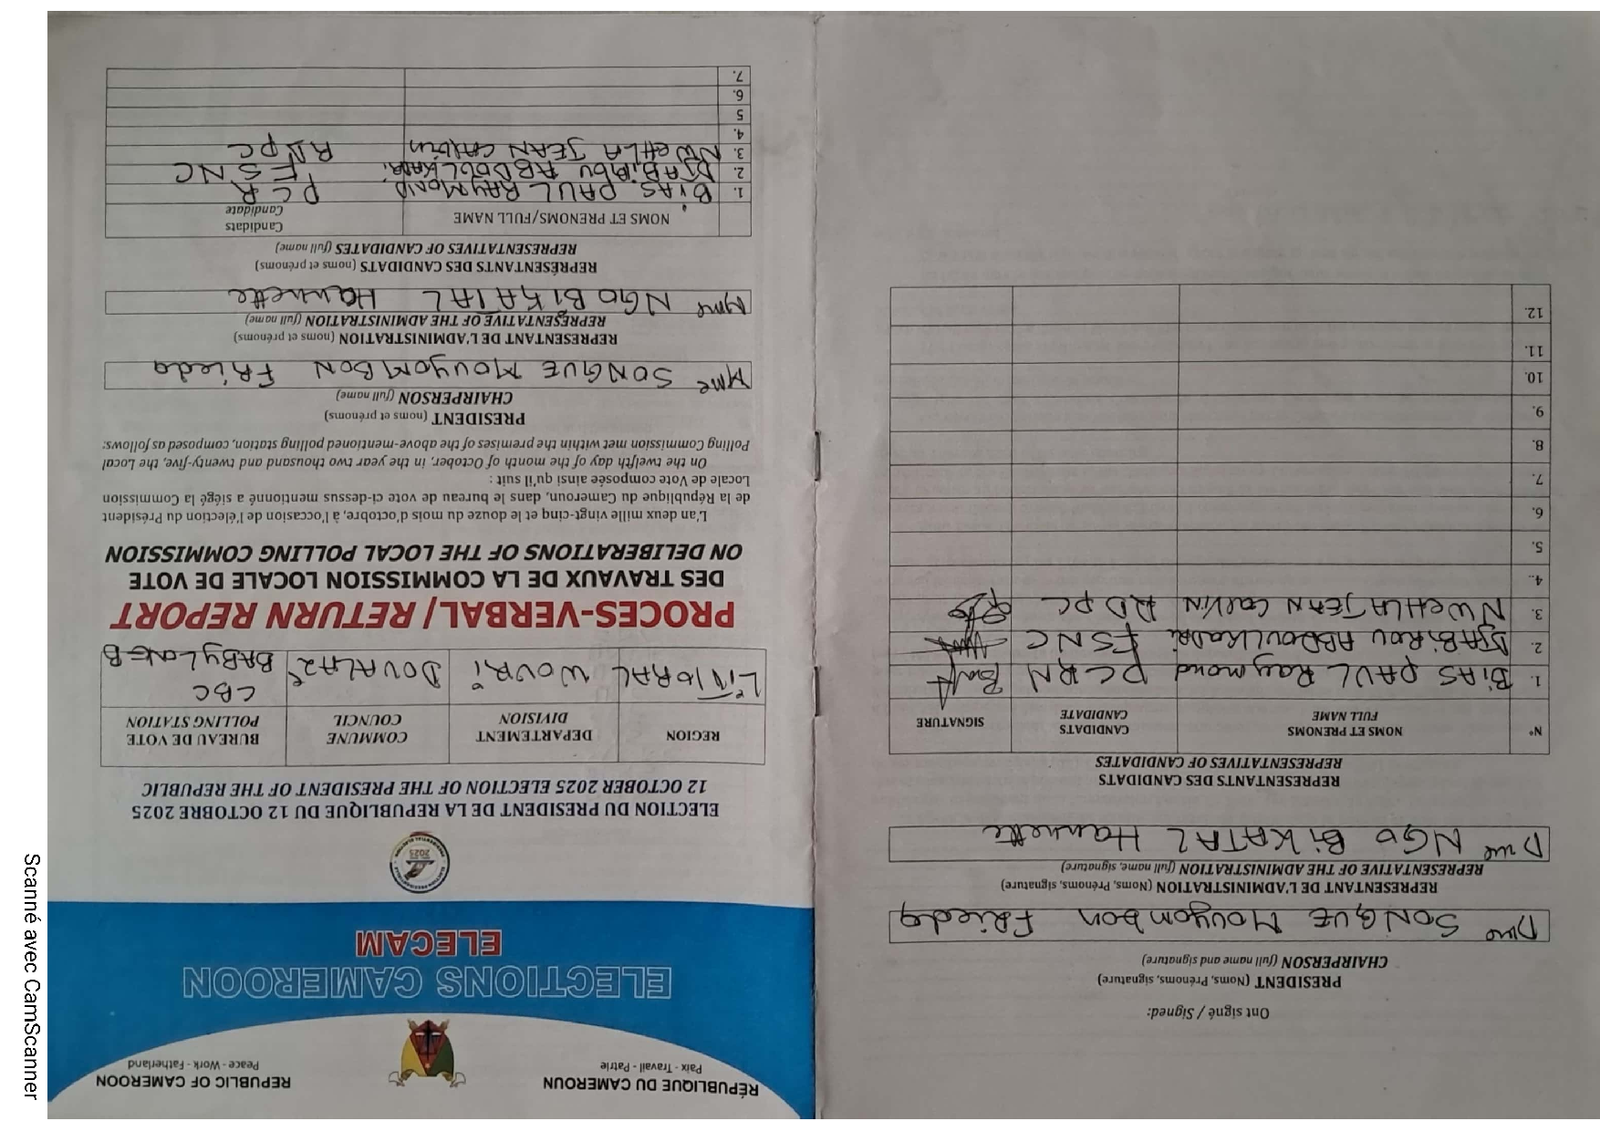 RÉPUBLIQUE DU CAMEROUN
Paix - Travail - Patrie
REPUBLIC OF CAMEROON
Peace - Work - Fatherland
ELECTIONS CAMEROON
ELECAM
ELECTION DU PRESIDENT DE LA REPUBLIQUE DU 12 OCTOBRE 2025
12 OCTOBER 2025 ELECTION OF THE PRESIDENT OF THE REPUBLIC
REGION DEPARTEMENT COMMUNE BUREAU DE VOTE
DIVISION COUNCIL POLLING STATION
LITTORAL WOURI DOUALA 2e CBC
BABYLONE B
PROCES-VERBAL/ RETURN REPORT
DES TRAVAUX DE LA COMMISSION LOCALE DE VOTE
ON DELIBERATIONS OF THE LOCAL POLLING COMMISSION
L'an deux mille vingt-cinq et le douze du mois d'octobre, à l'occasion de l'élection du Président
de la République du Cameroun, dans le bureau de vote ci-dessus mentionné a siégé la Commission
Locale de Vote composée ainsi qu'il suit :
On the twelfth day of the month of October, in the year two thousand and twenty-five, the Local
Polling Commission met within the premises of the above-mentioned polling station, composed as follows:
PRESIDENT (noms et prénoms)
CHAIRPERSON (full name)
Mme SONGUE MOUYOMBON FRieda
REPRESENTANT DE L'ADMINISTRATION (noms et prénoms)
REPRESENTATIVE OF THE ADMINISTRATION (full name)
Mme NGO BIKATAL Hannette
REPRÉSENTANTS DES CANDIDATS (noms et prénoms)
REPRESENTATIVES OF CANDIDATES (full name)
NOMS ET PRENOMS/FULL NAME Candidats
Candidate
1. BiAS PAUL RAYMOND PCR
2. DJABIROU ABDOULKADRi FSNC
3. NWEHLA JEAN CALVIN RDPC
4.
5
6.
7.
Ont signé / Signed:
PRESIDENT (Noms, Prénoms, signature)
CHAIRPERSON (full name and signature)
Dme SONGUE Mouyombon FRieda
REPRESENTANT DE L'ADMINISTRATION (Noms, Prénoms, signature)
REPRESENTATIVE OF THE ADMINISTRATION (full name, signature)
Dme NGO BiKATAL Hannette
REPRESENTANTS DES CANDIDATS
REPRESENTATIVES OF CANDIDATES
N° NOMS ET PRENOMS CANDIDATS SIGNATURE
FULL NAME CANDIDATE
1. BiAS PAUL Raymond PCRN
2. DJABiROU ABDOULKADRi FSNC
3. NWEHLA JEAN Calvin RDPC
4.
5.
6.
7.
8.
9.
10.
11.
12.
Scanné avec CamScanner